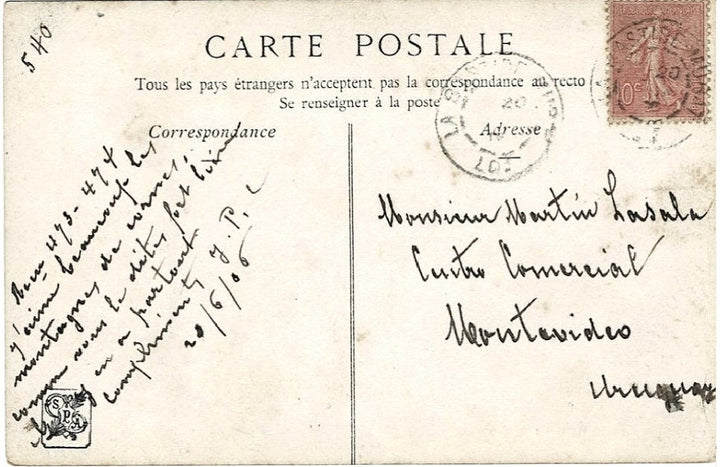 540
CARTE POSTALE
Tous les pays étrangers n'acceptent pas la correspondance au recto
Se renseigner à la poste
Correspondance
Adresse
10c
20
20
107
Reçu 473-474
J'aime beaucoup les
montagnes de cornes,
comme vous le dites fort bien
il y en a partout
compliments J. P. L
20/6/06
SPA
Monsieur Martín Lasala
Centro Comercial
Montevideo
Uruguay